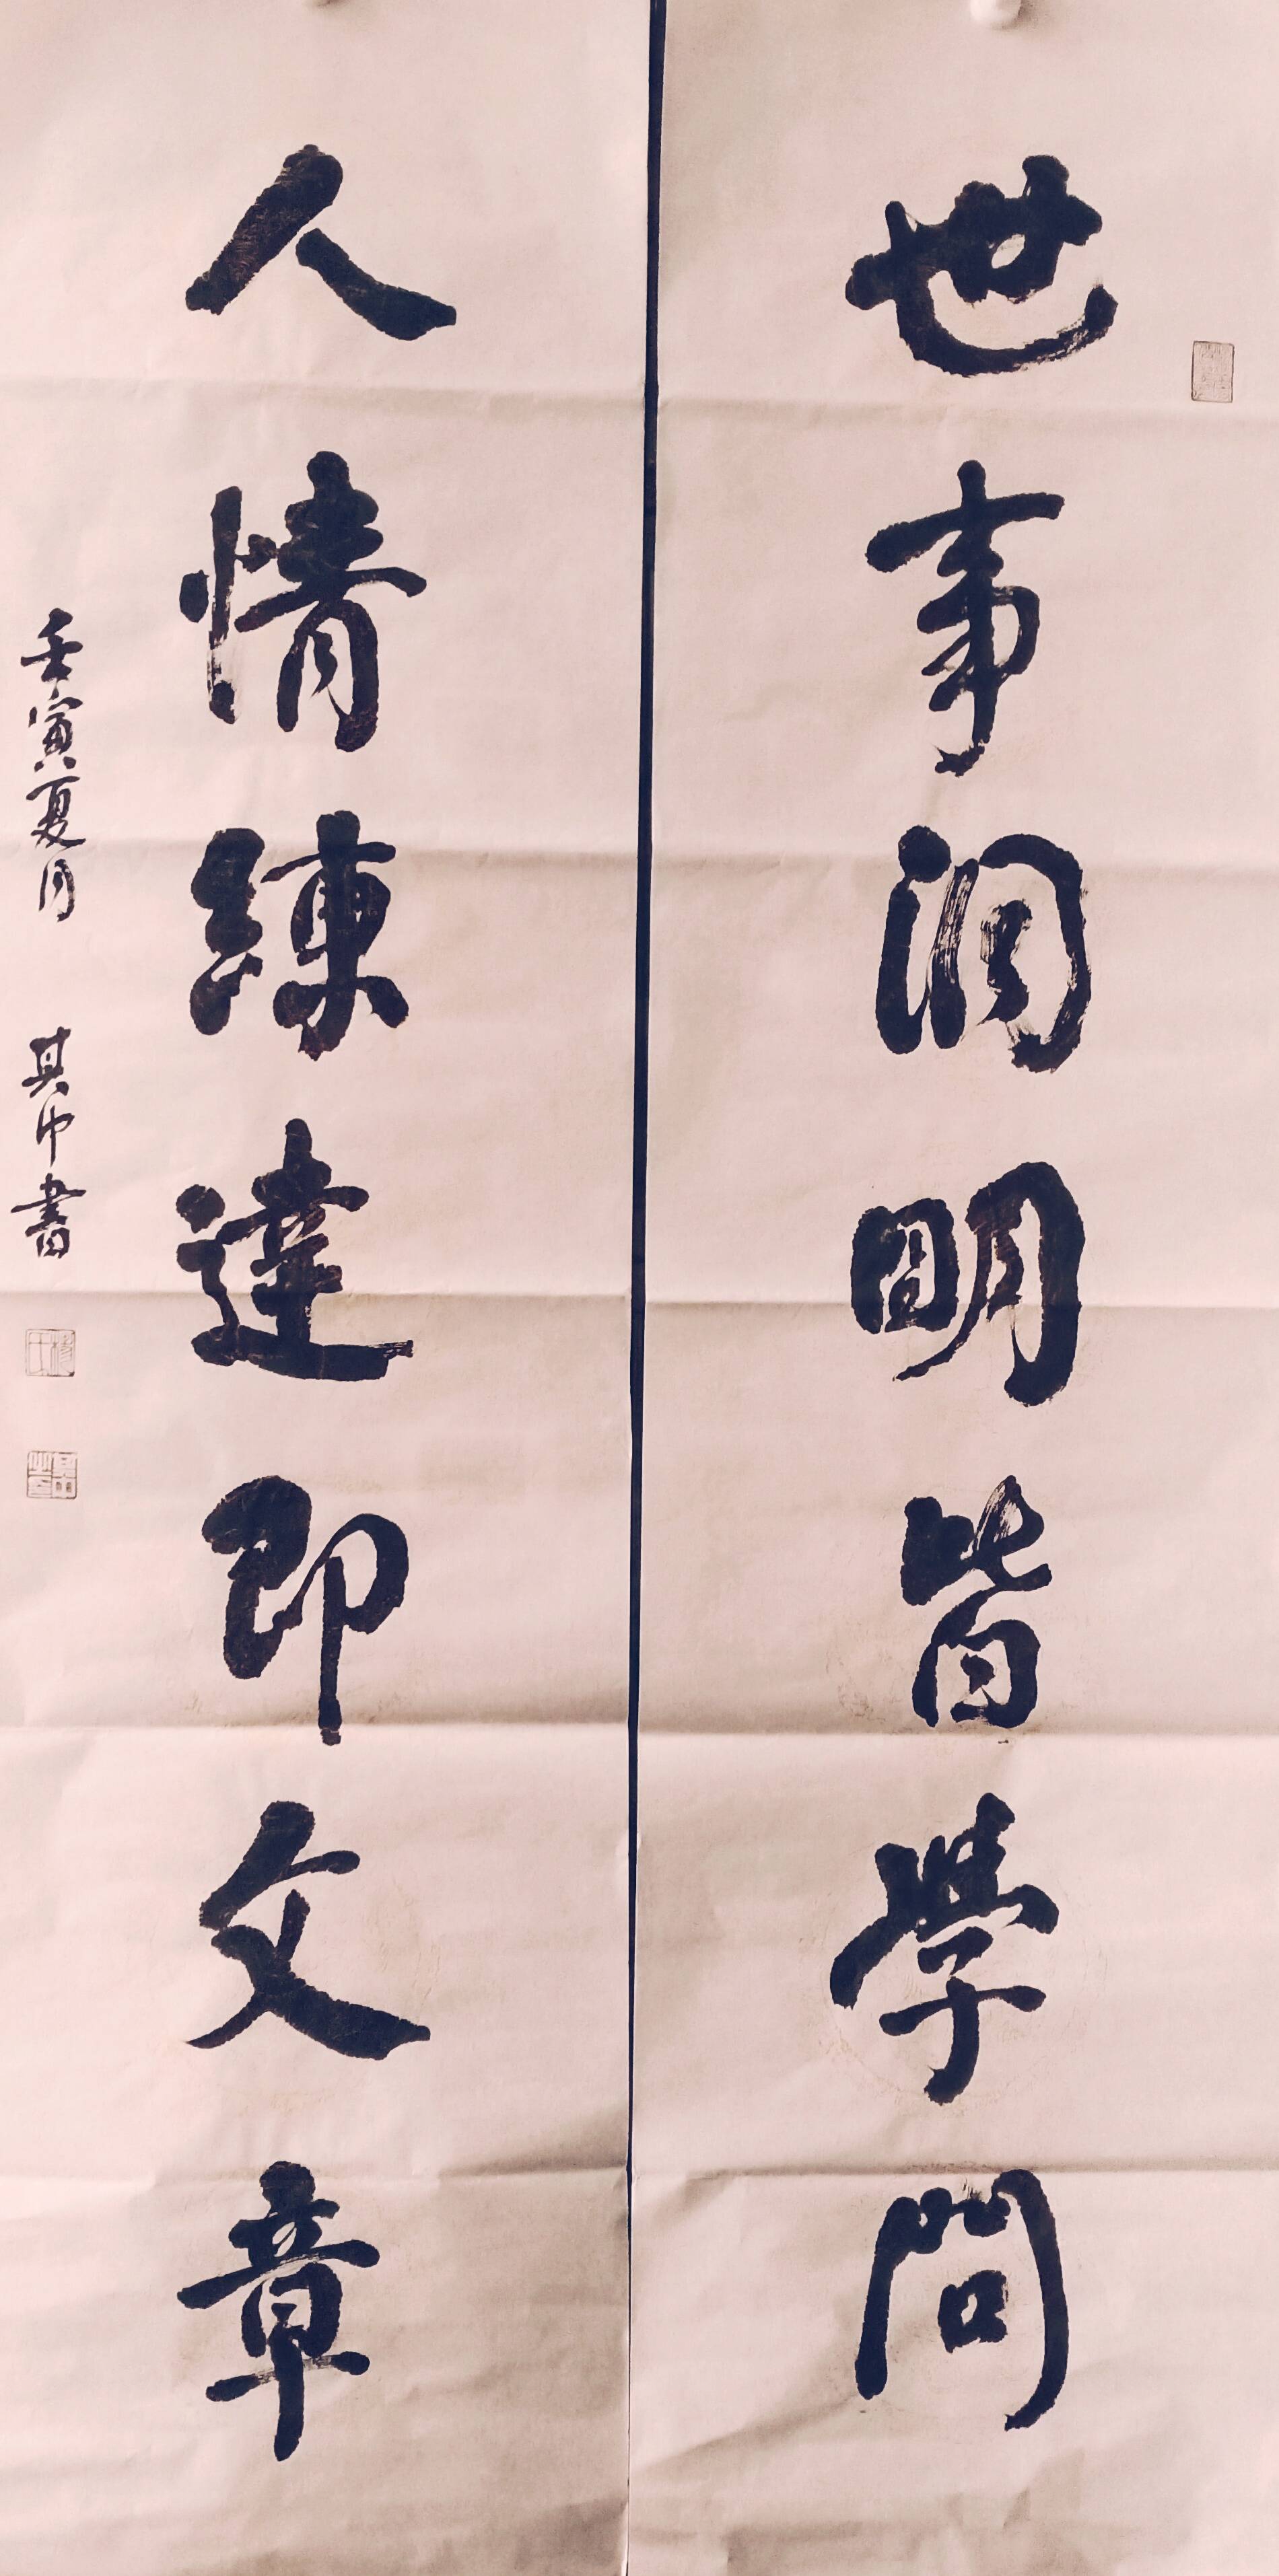 世事洞明皆學問
人情練達即文章
壬寅夏月 其中書